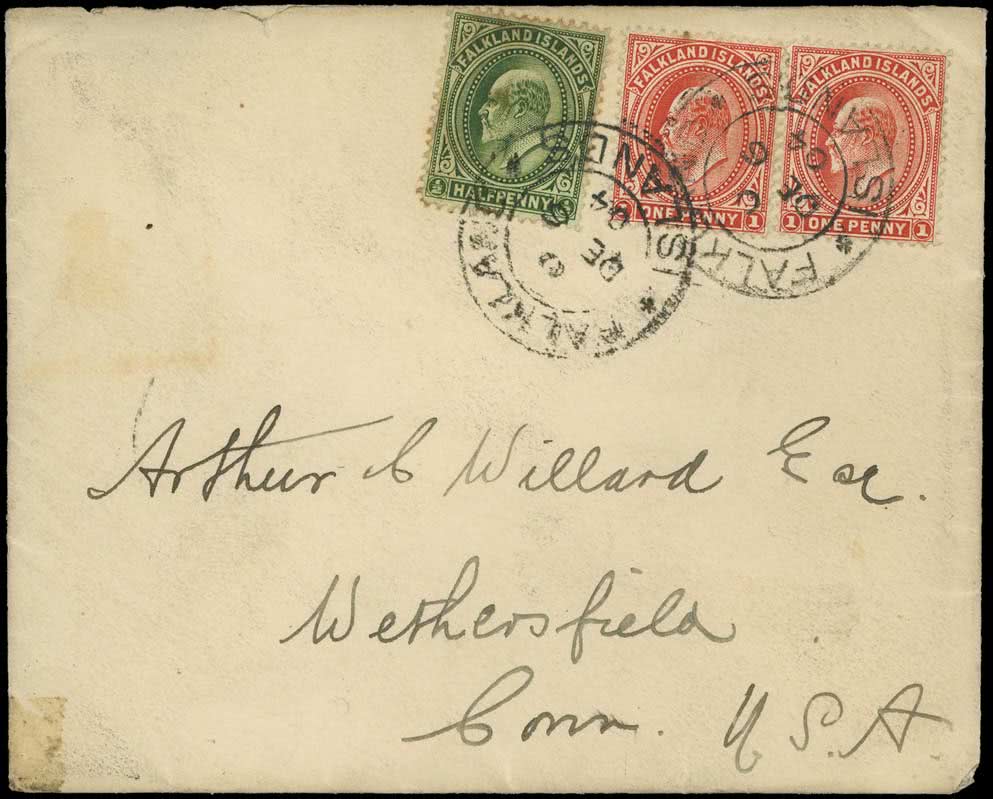 FALKLAND ISLANDS
½ HALFPENNY ½
FALKLAND ISLANDS
1 ONE PENNY 1
FALKLAND ISLANDS
1 ONE PENNY 1
FALKLAND ISLANDS
DE
04
FALKLAND ISLANDS
DE
04
Arthur C Willard Esq.
Wethersfield
Conn. U.S.A.